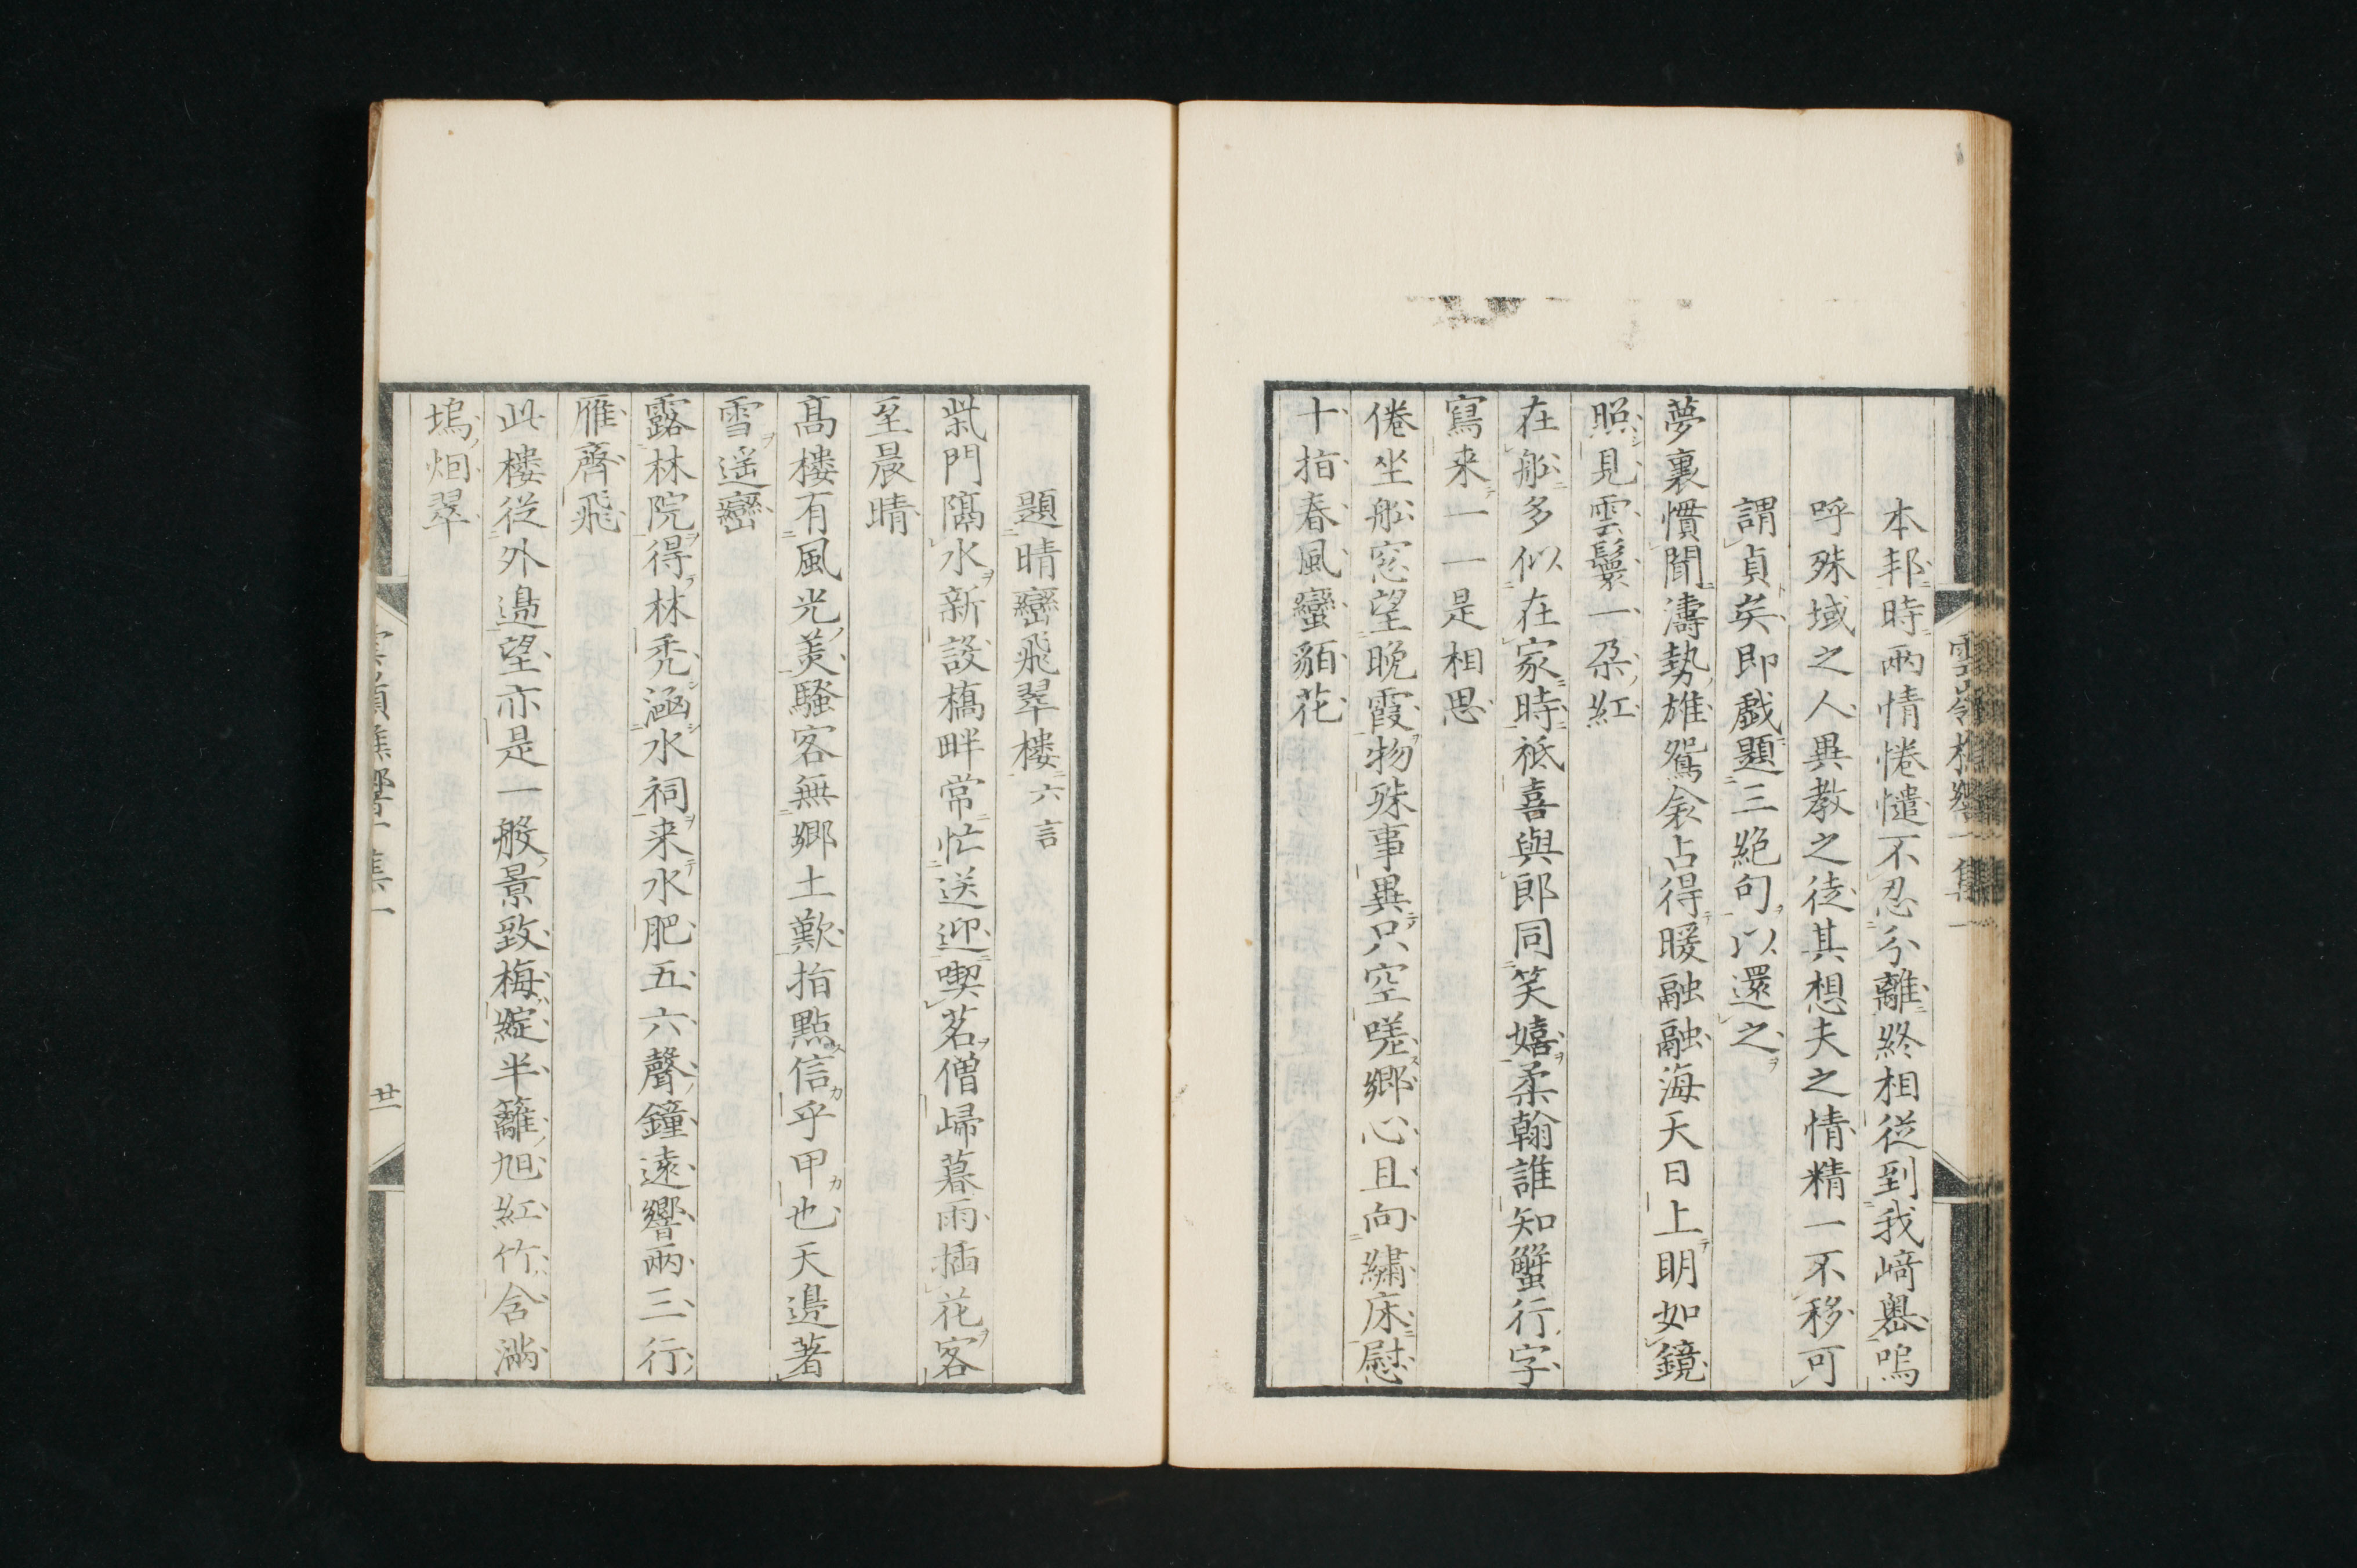 本邦時兩情惓惓不忍分離終相從到我﨑嶴嗚
呼殊域之人異教之徒其想夫之情精一不移可
謂貞矣即戲題三絕句以還之
夢裏慣聞濤勢雄鴛衾占得暖融融海天日上明如鏡
照見雲鬟一朶紅
在船多似在家時祇喜與郎同笑嬉柔翰誰知蟹行字
寫来一一是相思
倦坐船窓望晚霞物殊事異只空嗟鄉心且向繡床慰
十指春風蠻貊花
題晴巒飛翠樓六言
柴門隔水新設橋畔常忙送迎喫茗僧歸暮雨插花客
至晨晴
高樓有風光美騷客無鄉土歎指點信乎甲也天邊著
雪遥巒
露林院得林禿涵水祠来水肥五六聲鐘遠響兩三行
雁齊飛
此樓從外邊望亦是一般景致梅綻半籬旭紅竹含滿
塢烟翠
集一
廿一